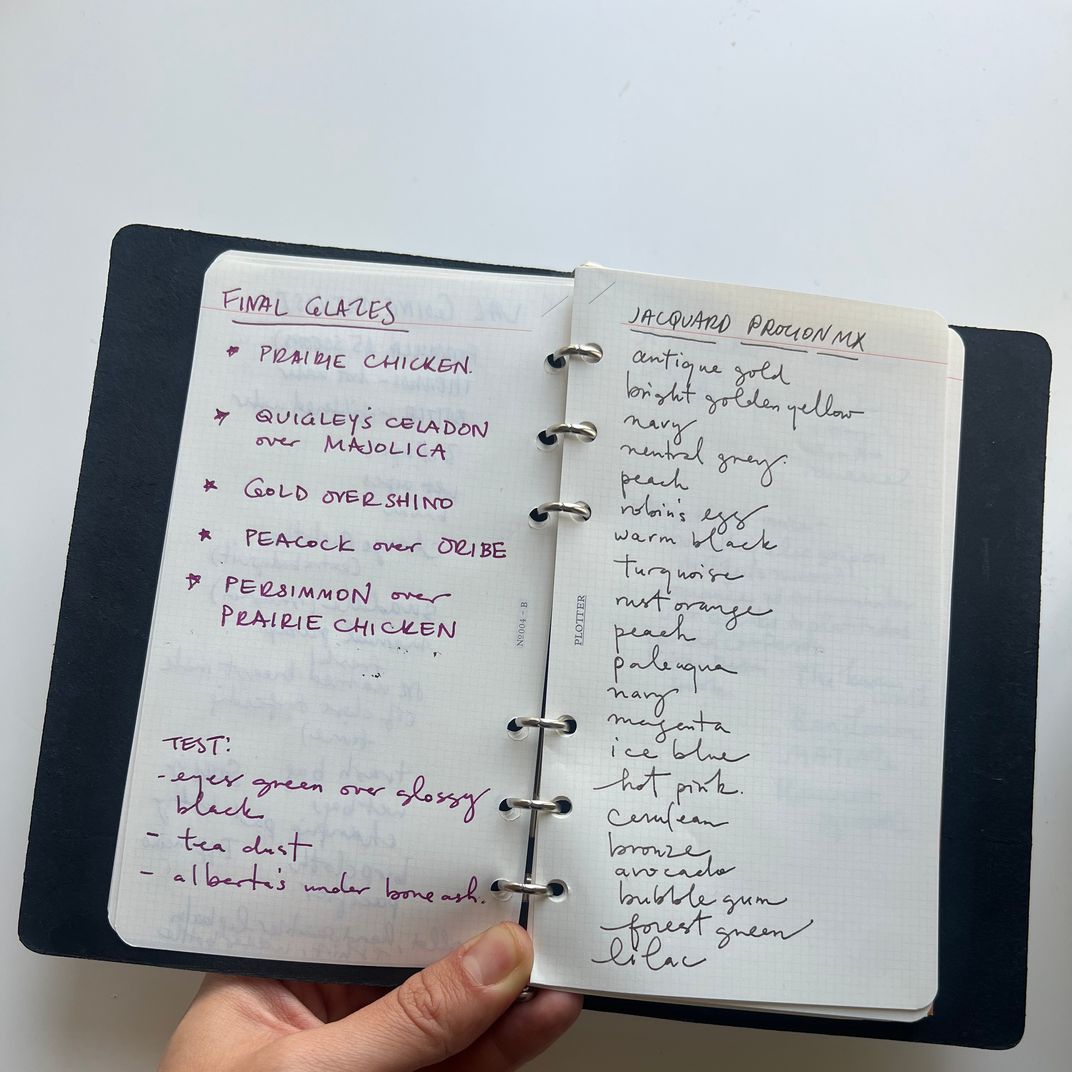 FINAL GLAZES
* PRAIRIE CHICKEN.
* QUIGLEY'S CELADON
over MAJOLICA
* GOLD OVER SHINO
* PEACOCK over ORIBE
* PERSIMMON over
PRAIRIE CHICKEN
TEST:
- eyes green over glossy
black
- tea dust
- alberta's under bone ash.
Nº004 - B
PLOTTER
JACQUARD PROCION MX
antique gold
bright golden yellow
navy
neutral grey.
peach
robin's egg
warm black
turquoise
rust orange
peach
pale aqua
navy
magenta
ice blue
hot pink.
cerulean
bronze
avocado
bubble gum
forest green
lilac